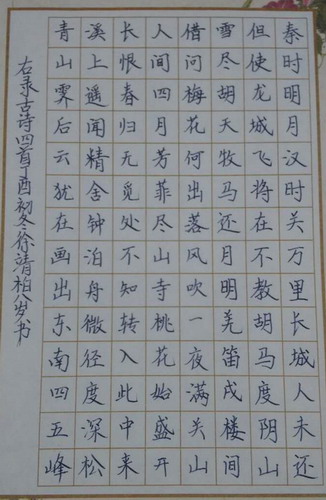 秦时明月汉时关万里长城人未还
但使龙城飞将在不教胡马度阴山
雪尽胡天牧马还月明羌笛戍楼间
借问梅花何出落风吹一夜满关山
人间四月芳菲尽山寺桃花始盛开
长恨春归无觅处不知转入此中来
溪上遥闻精舍钟泊舟微径度深松
青山霁后云犹在画出东南四五峰
右录古诗四首丁酉初冬徐靖柏八岁书